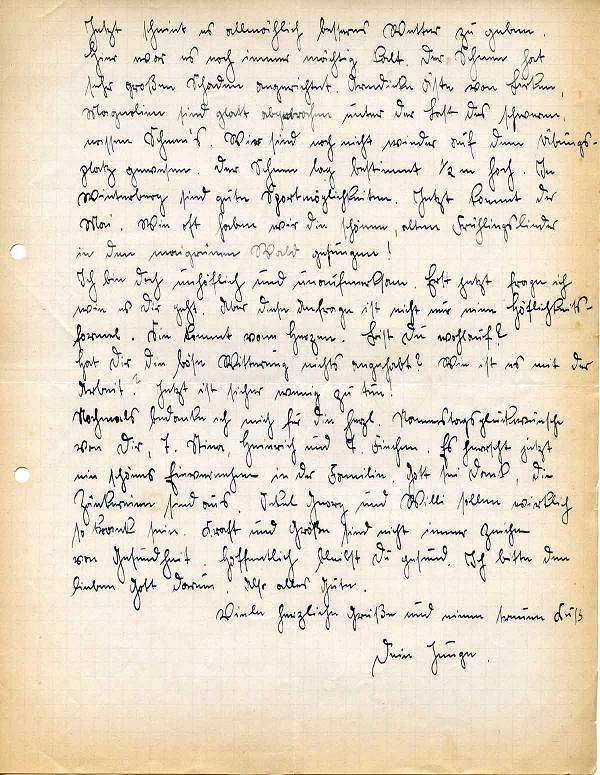 Jetzt scheint es allmählich besseres Wetter zu geben.
Hier war es noch immer mächtig kalt. Der Schnee hat
sehr großen Schaden angerichtet. Armdicke Äste von Birken,
Magnolien sind glatt abgebrochen unter der Last des schweren,
nassen Schnee's. Wir sind noch nicht wieder auf dem Übungs-
platz gewesen. Der Schnee lag bestimmt 1/2 m hoch. In
Winterberg sind gute Sportmöglichkeiten. Jetzt kommt der
Mai. Wie oft haben wir die schönen, alten Frühlingslieder
in dem maigrünen Wald gesungen!
Ich bin doch unhöflich und unaufmerksam. Erst jetzt frage ich
wie es Dir geht. Aber diese Anfrage ist nicht nur eine Höflichkeits-
formel. Sie kommt vom Herzen. Bist Du wohlauf?
Hat Dir die böse Witterung nichts angehabt? Wie ist es mit der
Arbeit? Jetzt ist sicher wenig zu tun!
Nochmals bedanke ich mich für die herzl. Namenstagsglückwünsche
von Dir, T. Stina, Heinrich und T. Finchen. Es herrscht jetzt
ein schönes Einvernehmen in der Familie. Gott sei Dank, die
Zänkereien sind aus. Onkel Georg und Willi sollen wirklich
so krank sein. Kraft und Größe sind nicht immer Zeichen
von Gesundheit. Hoffentlich bleibst Du gesund. Ich bitte den
lieben Gott darum. Also alles Gute.
Viele herzliche Grüße und einen treuen Kuß
Dein Junge.